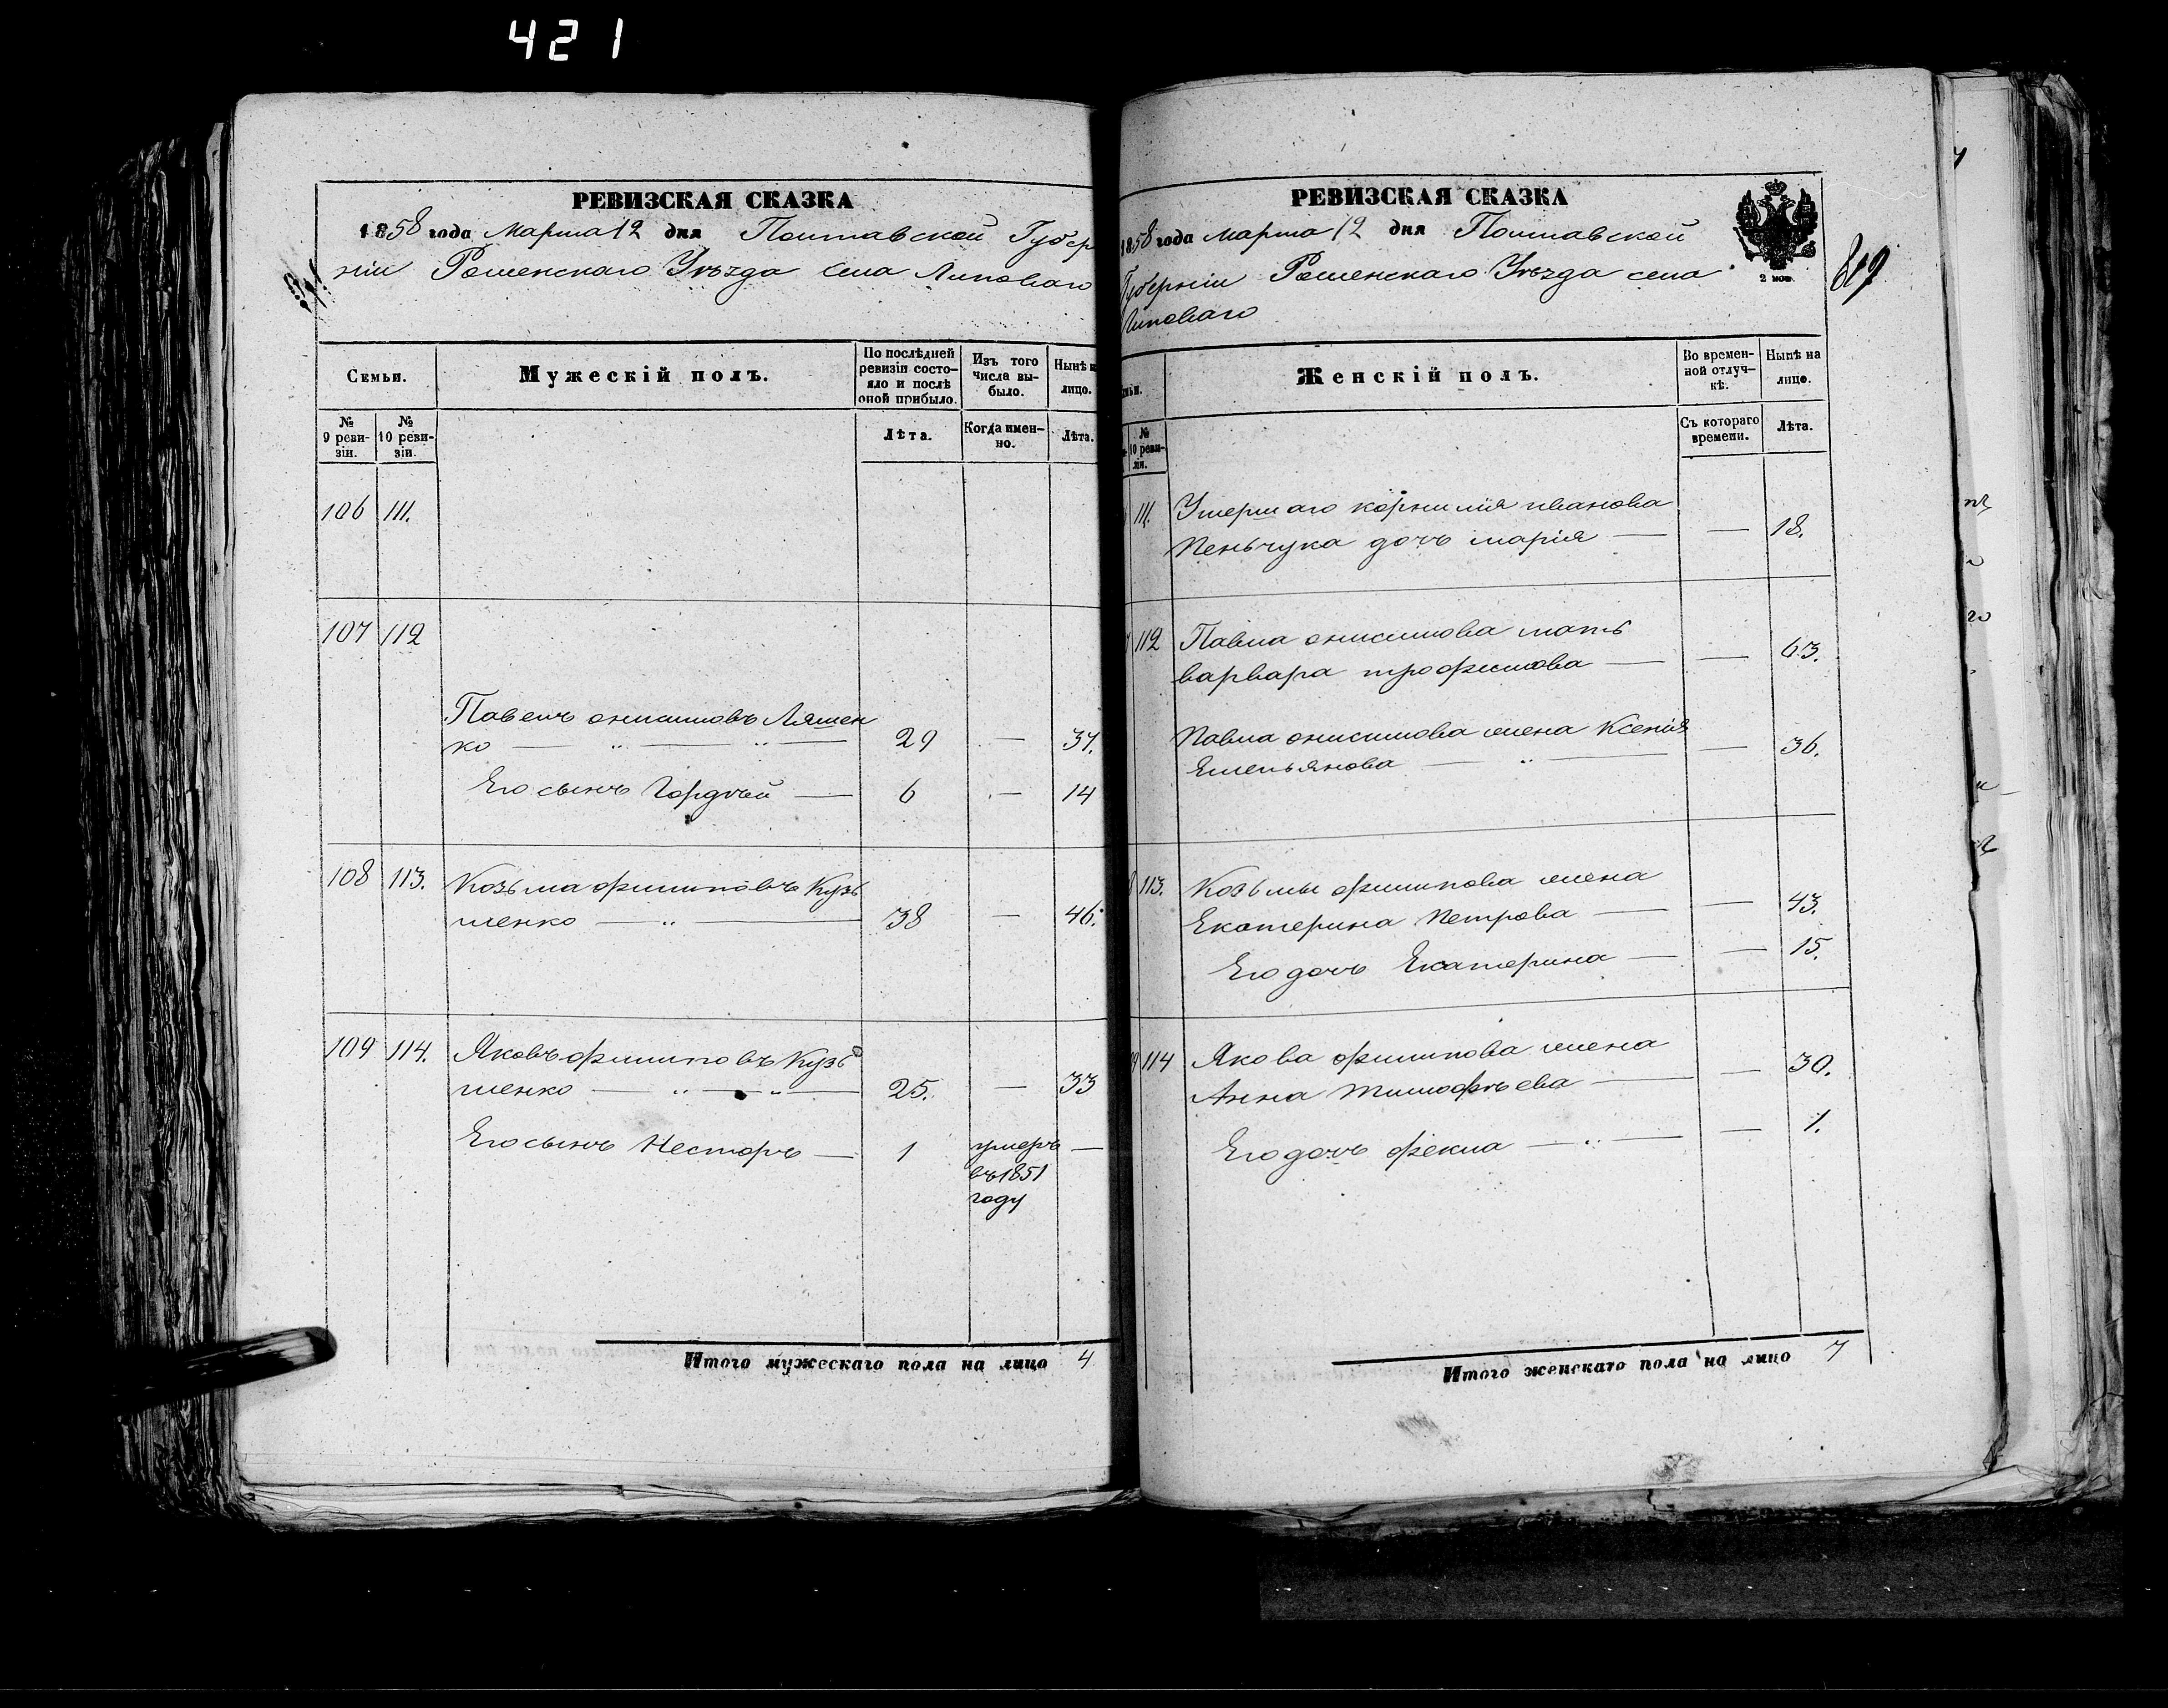 421
РЕВИЗСКАЯ СКАЗКА
1858 года Марта 12 дня Полтавской Губер
ніи Роменскаго Уѣзда села Липоваго
Семьи.
Мужескій полъ.
По послѣдней
ревизіи состо-
яло и послѣ
оной прибыло.
Изъ того
числа вы-
было.
Нынѣ н
лицо.
№
9 реви-
зіи.
№
10 реви-
зіи.
Лѣта.
Когда имен-
но.
Лѣта.
106 111.
107 112
Павелъ онисимовъ Ляшен
ко — „ — „ — 29 — 37.
Его сынъ Гордѣй — 6 — 14
108 113. Козьма филиповъ Кузь
менко — „ — 38 — 46.
109 114. Яковъ филиповъ Кузь
менко — „ — „ — 25. — 33
Его сынъ Несторъ — 1 умеръ —
въ 1851
году
Итого мужескаго пола на лицо 4
РЕВИЗСКАЯ СКАЗКА
1858 года марта 12 дня Полтавской
Губерніи Роменскаго Уѣзда села
Липоваго
2 коп.
819
Женскій полъ.
Во времен-
ной отлуч-
кѣ.
Нынѣ на
лицо.
№
10 реви-
зіи.
Съ котораго
времени.
Лѣта.
111. Умершаго корнилія иванова
Пеньчука дочь марія — — 18.
112 Павла онисимова мать
варвара трофимова — — 63.
Павла онисимова жена Ксенія
Емельянова — „ — — 36.
113. Козьмы филипова жена
Екатерина Петрова — — 43.
Его дочь Екатерина — — 15.
114 Якова филипова жена
Анна тимофѣева — — 30.
Его дочь фекла — „ — — 1.
Итого женскаго пола на лицо 7